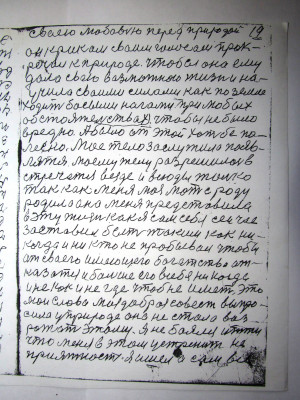 своею любовью перед природой 19
он криком своим голосом прок-
речал к природе. чтобы она ему
дала свою возможность жизни на-
учила своими силами как по земле
ходить босыми ногами при любых
обстоятелствах чтобы не было
вредно. А было от этой хотьбе по-
лезно. Мое тело заслужило появ-
лятся моему телу разрешилось в
стречатся везде и всюду только
так как меня моя мать с роду
родила она меня представила
в эту жизнь как я сам себя сейчас
заставил быть таким как ни-
когда и ни кто не пробывал чтобы
от своего имеющего богатства от-
казатся и больше его в себе ни когда
и не как и не где чтобы не иметь. Это
мои слова моя добрая совесть выпро-
сила у природе она не стала воз
рожать этому. Я не боялся итти
что меня в этом устренит не
приятность я шел и сам все